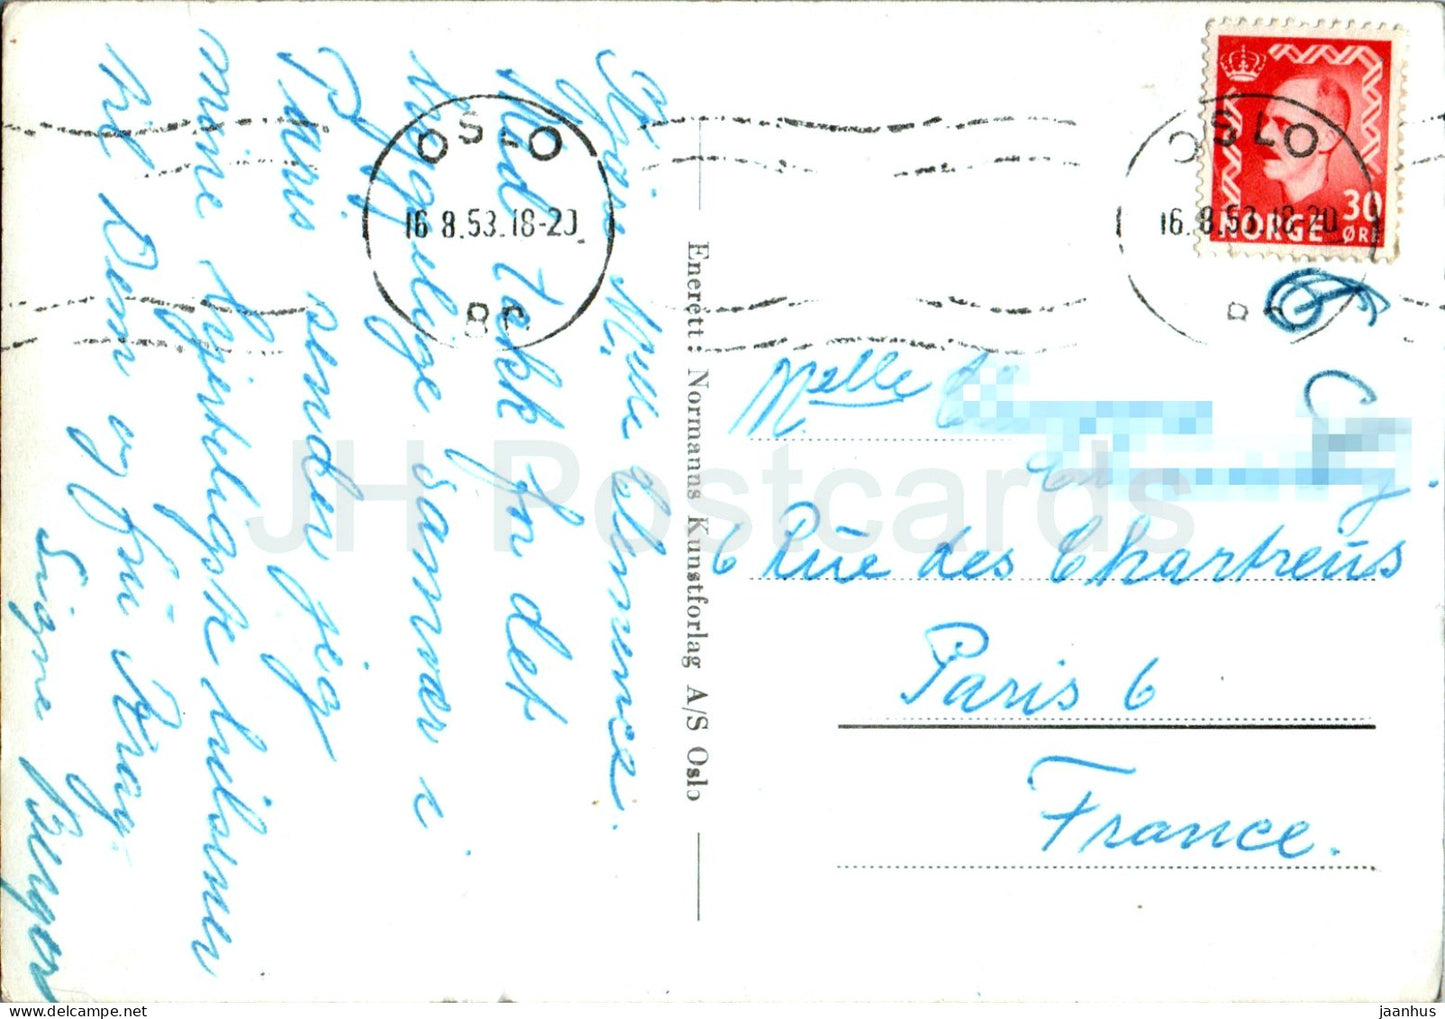 Kjære Mlle Clemence.
Med takk for det
hyggelige samvær i
Paris sender jeg
mine hjerteligste hilsener
til Dem og fru Krag
Signe Berger
OSLO
16 8.53.18-20
BR
Enerett: Normanns Kunstforlag A/S Oslo
OSLO
16.8.53.18-20
NORGE 30
ØRE
Melle
6 Rue des Chartreus
Paris 6
France.
JH Postcards
jaanhus